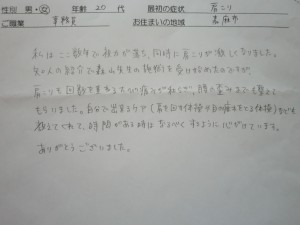 性別 男・女 年齢 20 代 最初の症状 肩こり
ご職業 事務員 お住まいの地域 嘉麻市
私はここ数年で視力が落ち、同時に肩こりが激しくなりました。
知人の紹介で森山先生の施術を受け始めたのですが、
肩こりも回数を重ねるたびに痛みが和らぎ、腰の歪みまでも整えて
もらいました。自分で出来るケア(肩を回す体操や目の疲れをとる体操)なども
教えてくれて、時間がある時はなるべくするように心がけています。
ありがとうございました。